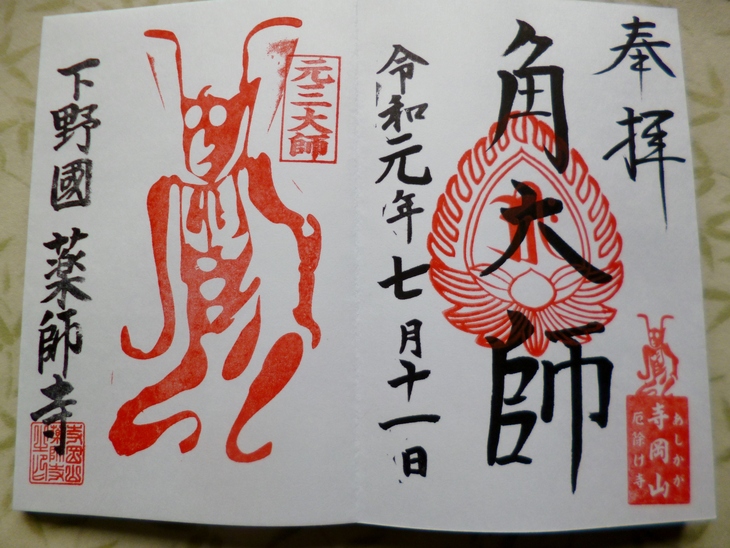 奉拝
角大師
令和元年七月十一日
あしかが
寺岡山
厄除け寺
元三大師
下野國 薬師寺